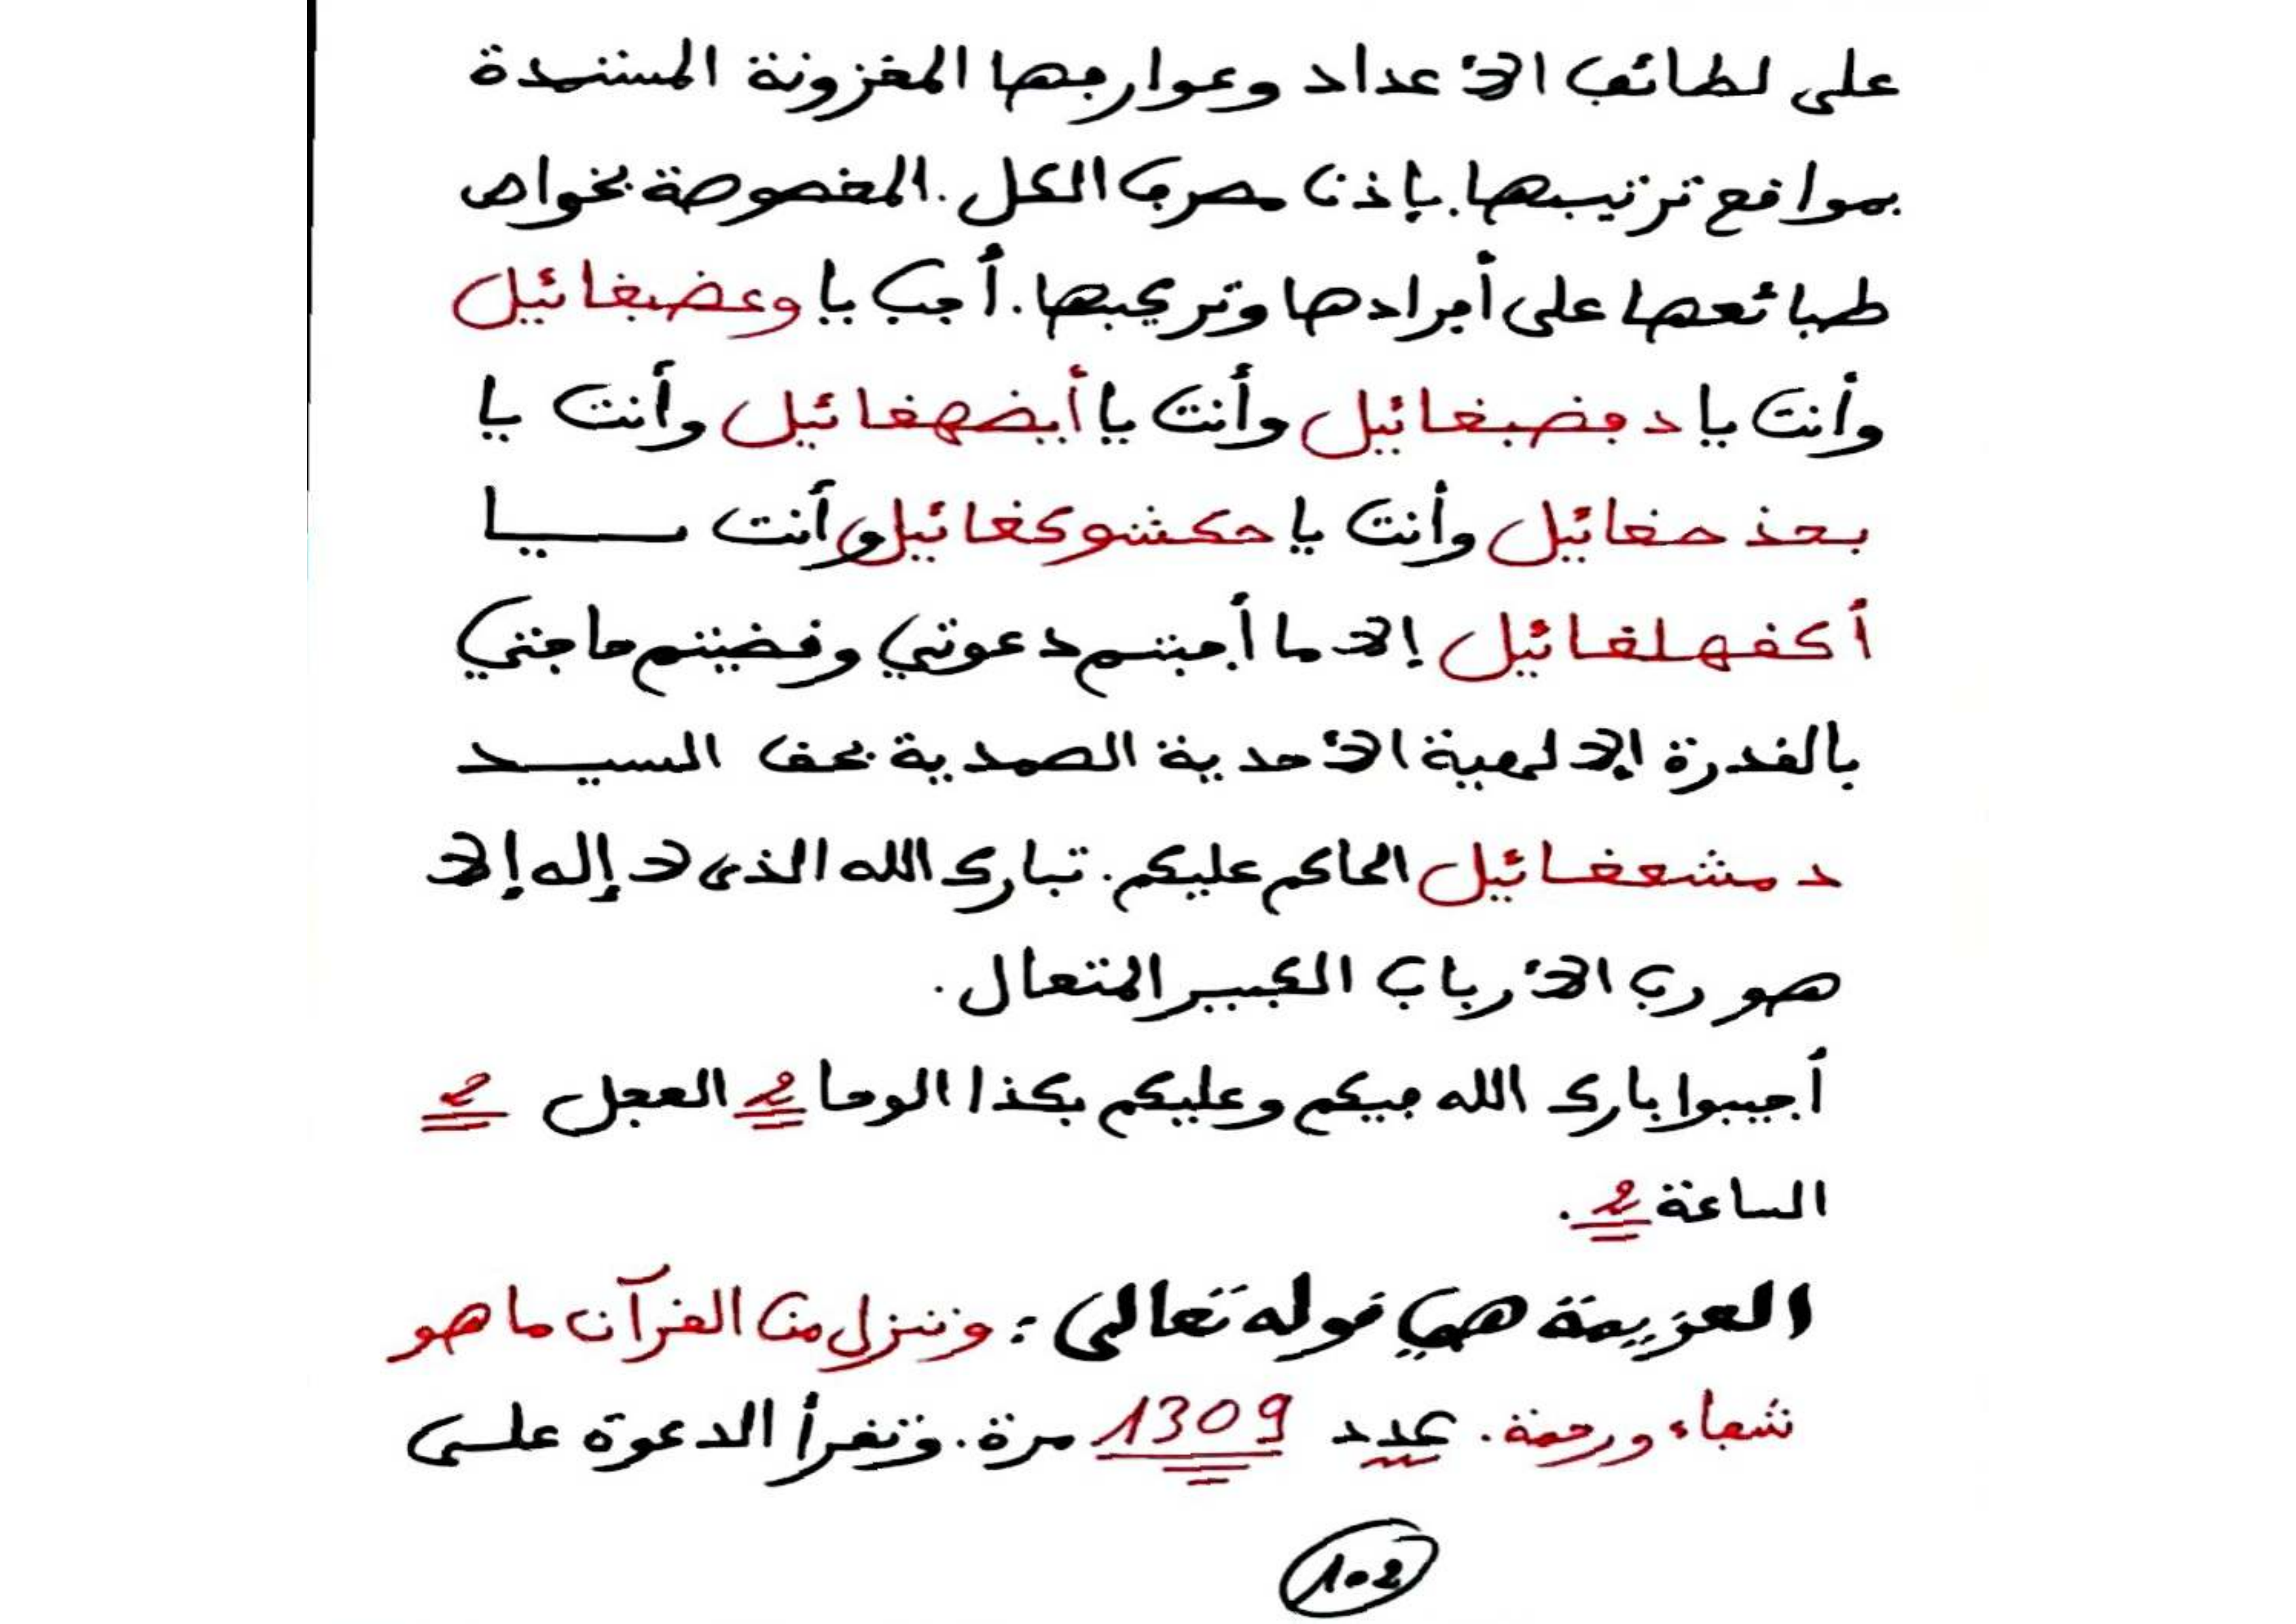 على لطائف الأعداد وعوارفها المخزونة المستندة
بمواقع ترتيبها. بإذن مصرف الكل. المخصوصة بخواص
طبائعها على أفرادها وتركيبها. أجب يا وعضبغائيل
وأنت يا دفضبغائيل وأنت يا أيضهغائيل وأنت يا
بعذمغائيل وأنت يا حكشوكغائيل وأنت يا
أكفهلغائيل إلا ما أجبتم دعوتي وقضيتم حاجتي
بالقدرة الإلهية الأحدية الصمدية بحق السيد
دمشعغائيل الحاكم عليكم. تبارك الله الذي لا إله إلا
هو رب الأرباب الكبير المتعال.
أجيبوا بارك الله فيكم وعليكم بكذا الوحا 2 العجل 2
الساعة 2.
العزيمة هي قوله تعالى: وننزل من القرآن ما هو
شفاء ورحمة. عدد 1309 مرة. وتقرأ الدعوة على
102